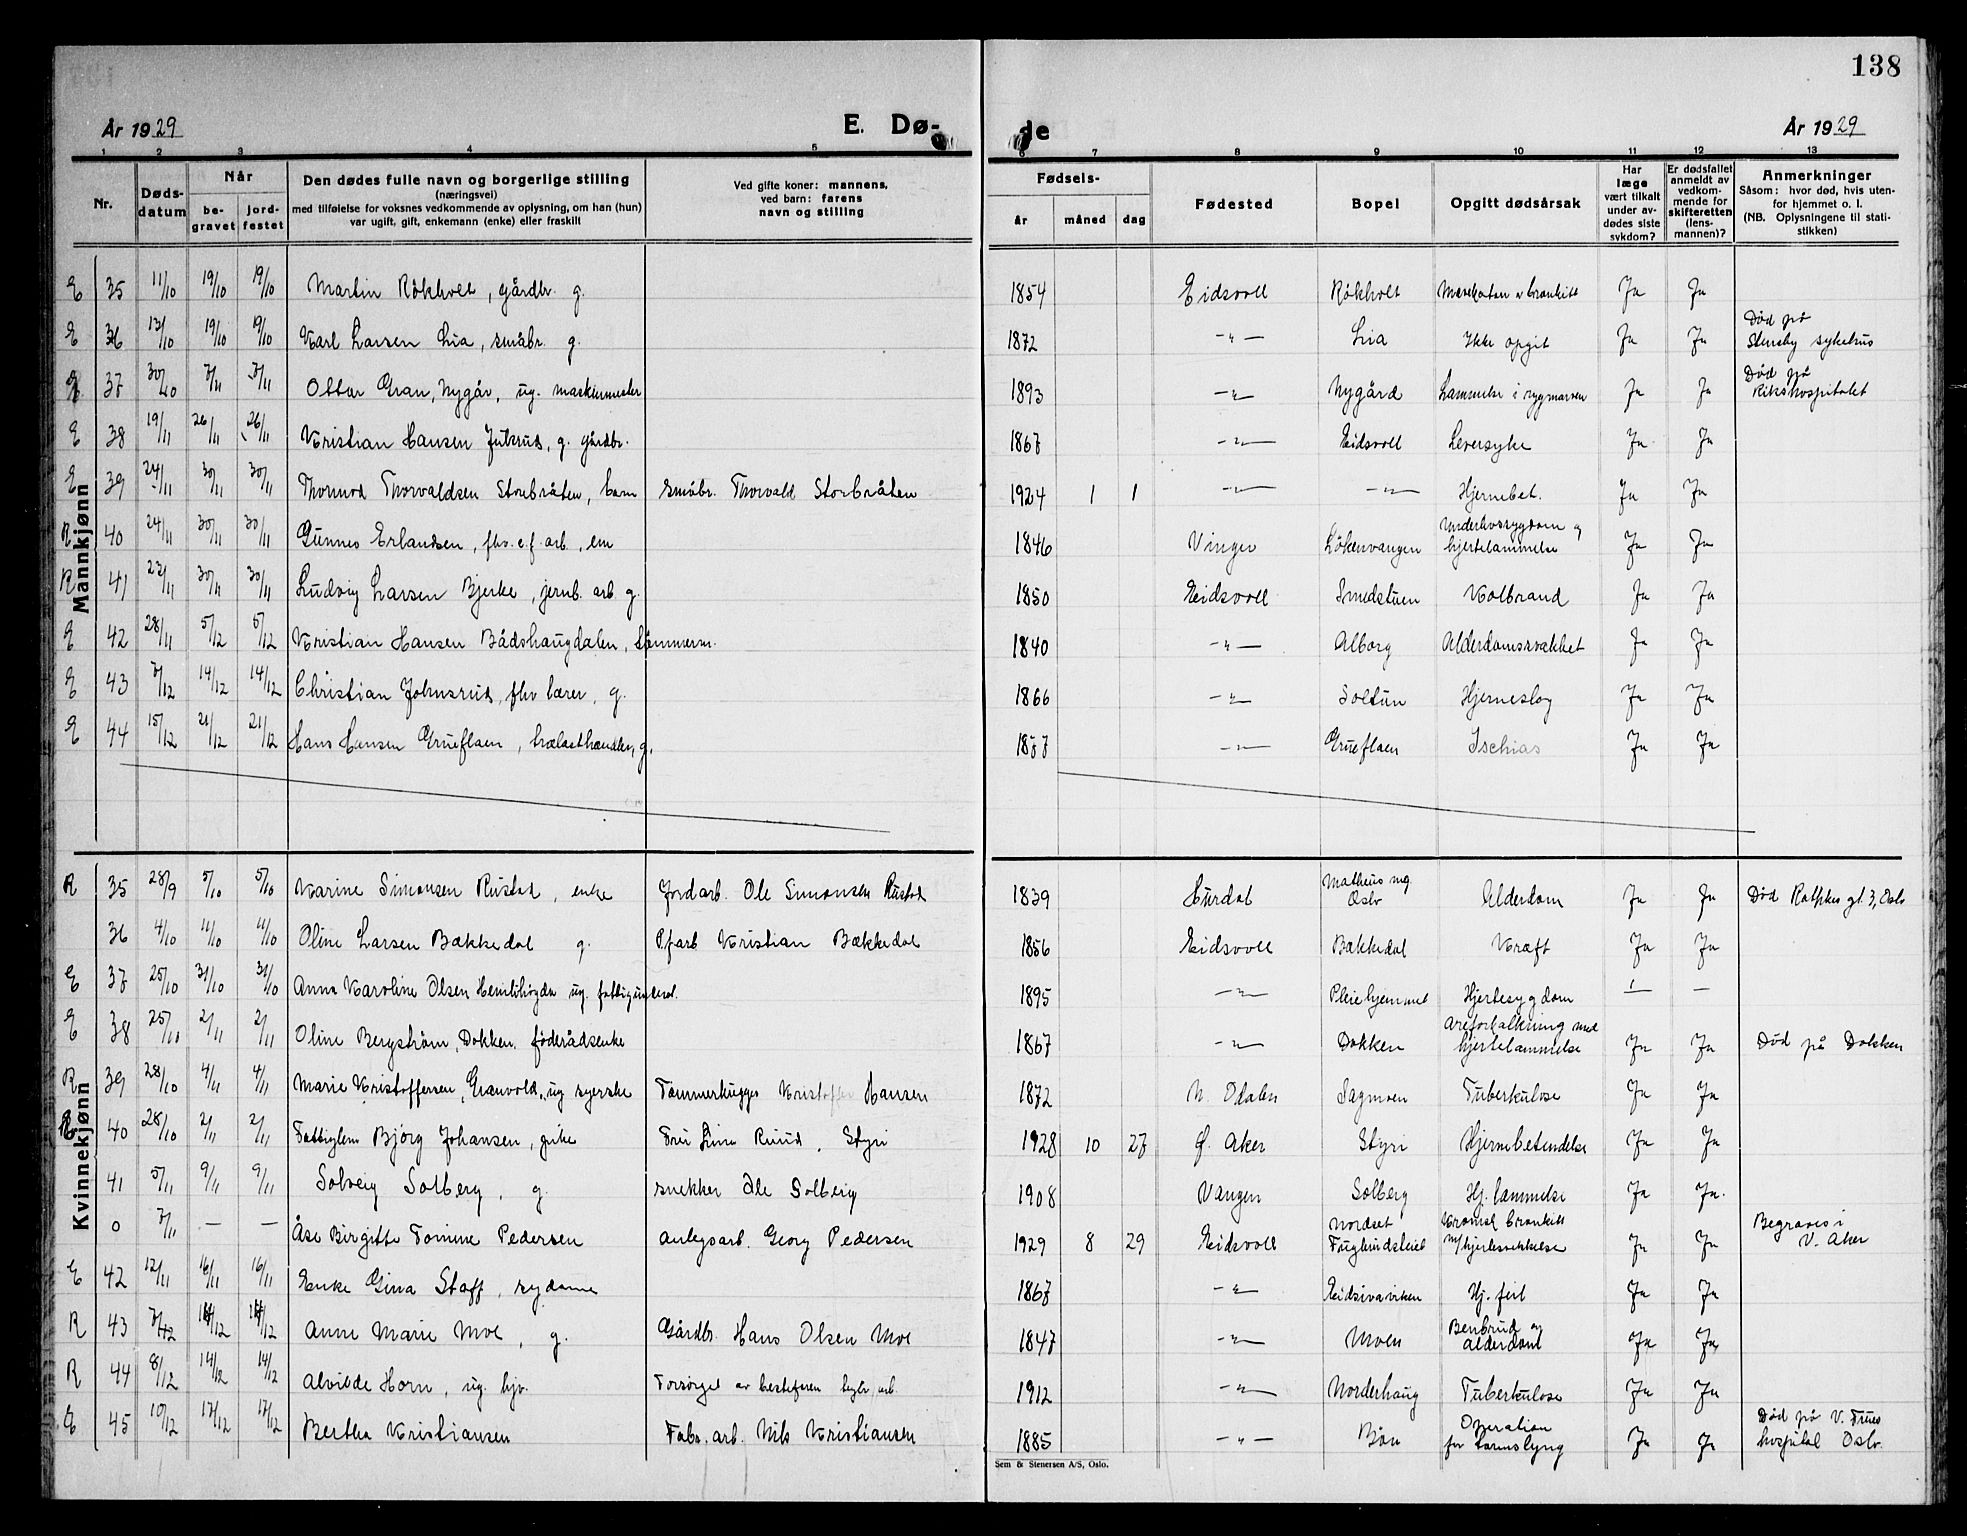 138
År 1929 E. Dø- de År 1929
1 2 3 4 5 6 7 8 9 10 11 12 13
Nr.
Døds-
datum
Når
be-
gravet
jord-
festet
Den dødes fulle navn og borgerlige stilling
(næringsvei)
med tilføielse for voksnes vedkommende av oplysning, om han (hun)
var ugift, gift, enkemann (enke) eller fraskilt
Ved gifte koner: mannens,
ved barn: farens
navn og stilling
Fødsels-
år måned dag
Fødested
Bopel
Opgitt dødsårsak
Har
læge
vært tilkalt
under av-
dødes siste
sykdom?
Er dødsfallet
anmeldt av
vedkom-
mende for
skifteretten
(lens-
mannen)?
Anmerkninger
Såsom: hvor død, hvis uten-
for hjemmet o. l.
(NB. Oplysningene til stati-
stikken)
Mannkjønn
E 35 11/10 19/10 19/10 Martin Rökholt, gårdbr. g. 1854 Eidsvoll Rökholt bronkitt Ja Ja
E 36 13/10 19/10 19/10 Karl Larsen Lia, småbr. g. 1872 -"- Lia Ikke opgit Ja Ja Død på
Stensby sykehus
E 37 30/10 7/11 7/11 Ottar Gran, Nygår, ug. maskinmester 1893 -"- Nygård Lammelse i rygmarven Ja Ja Død på
Rikshospitalet
E 38 19/11 26/11 26/11 Kristian Hansen Julsrud, g. gårdbr. 1867 -"- Eidsvoll Leversyke Ja Ja
E 39 24/11 30/11 30/11 Thormod Thorvaldsen Storbråten, barn småbr. Thorvald Storbråten 1924 1 1 -"- -"- Hjernebet. Ja Ja
R 40 24/11 30/11 30/11 Gunnes Erlandsen, fhv. c.f. arb., em 1846 Vinger Lökenvangen Underlivssygdom og
hjertelammelse Ja Ja
R 41 23/11 30/11 30/11 Ludvig Larsen Bjerke, jernb. arb. g. 1850 Eidsvoll Smedstuen Kolbrand Ja Ja
E 42 28/11 5/12 5/12 Kristian Hansen Bådshaugdalen, tömmerm. 1840 -"- Alborg Alderdomssvakhet Ja Ja
E 43 7/12 14/12 14/12 Christian Johnsrud, fhv lærer, g. 1866 -"- Soltun Hjerneslag Ja Ja
E 44 15/12 21/12 21/12 Hans Hansen Grueflaen, trælasthandler, g. -"- Grueflaen Ischias Ja Ja
Kvinnekjønn
R 35 28/9 5/10 5/10 Karine Simonsen Rustad, enke Jordarb. Ole Simonsen Rustad 1839 Hurdal Oslo Alderdom Ja Ja Død gt. 3, Oslo
36 4/10 11/10 11/10 Oline Larsen Bækkedal g. Pfarb Kristian Bækkedal 1856 Eidsvoll Bækkedal Kræft Ja Ja
E 37 25/10 31/10 31/10 Anna Karoline Olsen ug. fattigunderst. 1895 -"- Pleiehjemmet Hjertesygdom — —
E 38 25/10 2/11 2/11 Oline Bergström, Dokken, föderådsenke 1867 -"- Dokken Areforkalkning med
hjertelammelse Ja Ja Død på Dokken
R 39 28/10 4/11 4/11 Marie Kristoffersen, Grønvold, ug syerske Tømmerhugger Kristoffer Hansen 1872 N. Odalen Sagmoen Tuberkulose Ja Ja
40 28/10 2/11 2/11 Fattiglem Bjørg Johansen, pike Fru Lina Ruud, Styri 1928 10 27 Ø. Aker Styri Hjernebetendelse Ja Ja
41 5/11 9/11 9/11 Solveig Solberg, g. snekker Ole Solberg 1908 Vangen Solberg Hj. lammelse Ja Ja.
0 7/11 — — Åse Birgitte Tomine Pedersen anlegsarb. Georg Pedersen 1929 8 29 Eidsvoll Nordset
Kronisk bronkitt
m/hjertesvekkelse Ja Ja Begraves i
V. Aker
E 42 12/11 16/11 16/11 Enke Gina Staff, sydame 1867 -"- Hj. feil Ja Ja
R 43 7/12 14/12 14/12 Anne Marie Moe, g. Gårdbr. Hans Olsen Moe 1847 -"- Moen Benbrud og
Alderdom Ja Ja
R 44 8/12 14/12 14/12 Alvilde Horn, ug. hjv. Forsørget av bestefaren arb. 1912 -"- Norderhaug Tuberkulose Ja Ja
E 45 10/12 17/12 17/12 Bertha Kristiansen Fabr. arb. Nils Kristiansen 1885 -"- Bön Operation
for tarmslyng Ja Ja Død på V. Frues
hospital Oslo.
Sem & Stenersen A/S, Oslo.